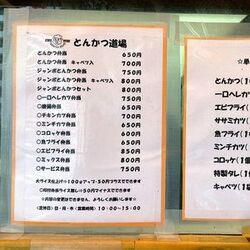 とんかつ道場
とんかつ弁当 650円
とんかつ弁当 キャベツ入 700円
ジャンボとんかつ弁当 750円
ジャンボとんかつ弁当 キャベツ入 800円
ジャンボとんかつセット 800円
一口ヘレカツ弁当 750円
○唐揚弁当 650円
○チキンカツ弁当 700円
○ミンチカツ弁当 650円
○コロッケ弁当 600円
○魚フライ弁当 650円
○エビフライ弁当 850円
○ミックス弁当 800円
○サービス弁当 750円
10:00〜15:00
☆単
とんかつ(1
一口ヘレカツ
エビフライ(
ササミカツ(
魚フライ(1
ミンチカツ(
コロッケ(1
特製タレ(1
キャベツ(1袋